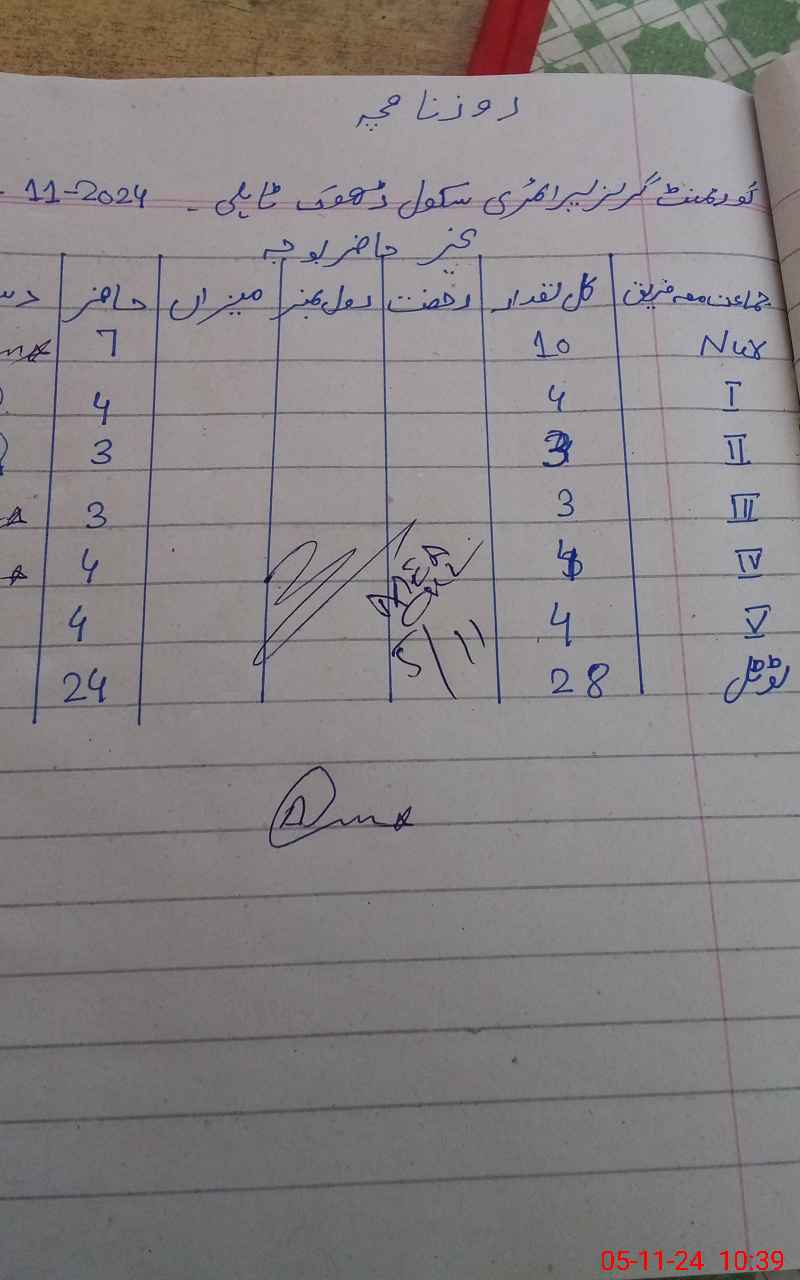 روزنامچہ
گورنمنٹ گرلز پرائمری سکول ڈھوک ٹاہلی ۔ 11-2024
غیر حاضر بوجہ
جماعت معہ فریق کل تعداد رخصت رول نمبر میزان حاضر
Nur 10 7
I 4 4
II 3 3
III 3 3
IV 4 4
V 4 4
ٹوٹل 28 24
MEA
5/11
05-11-24 10:39